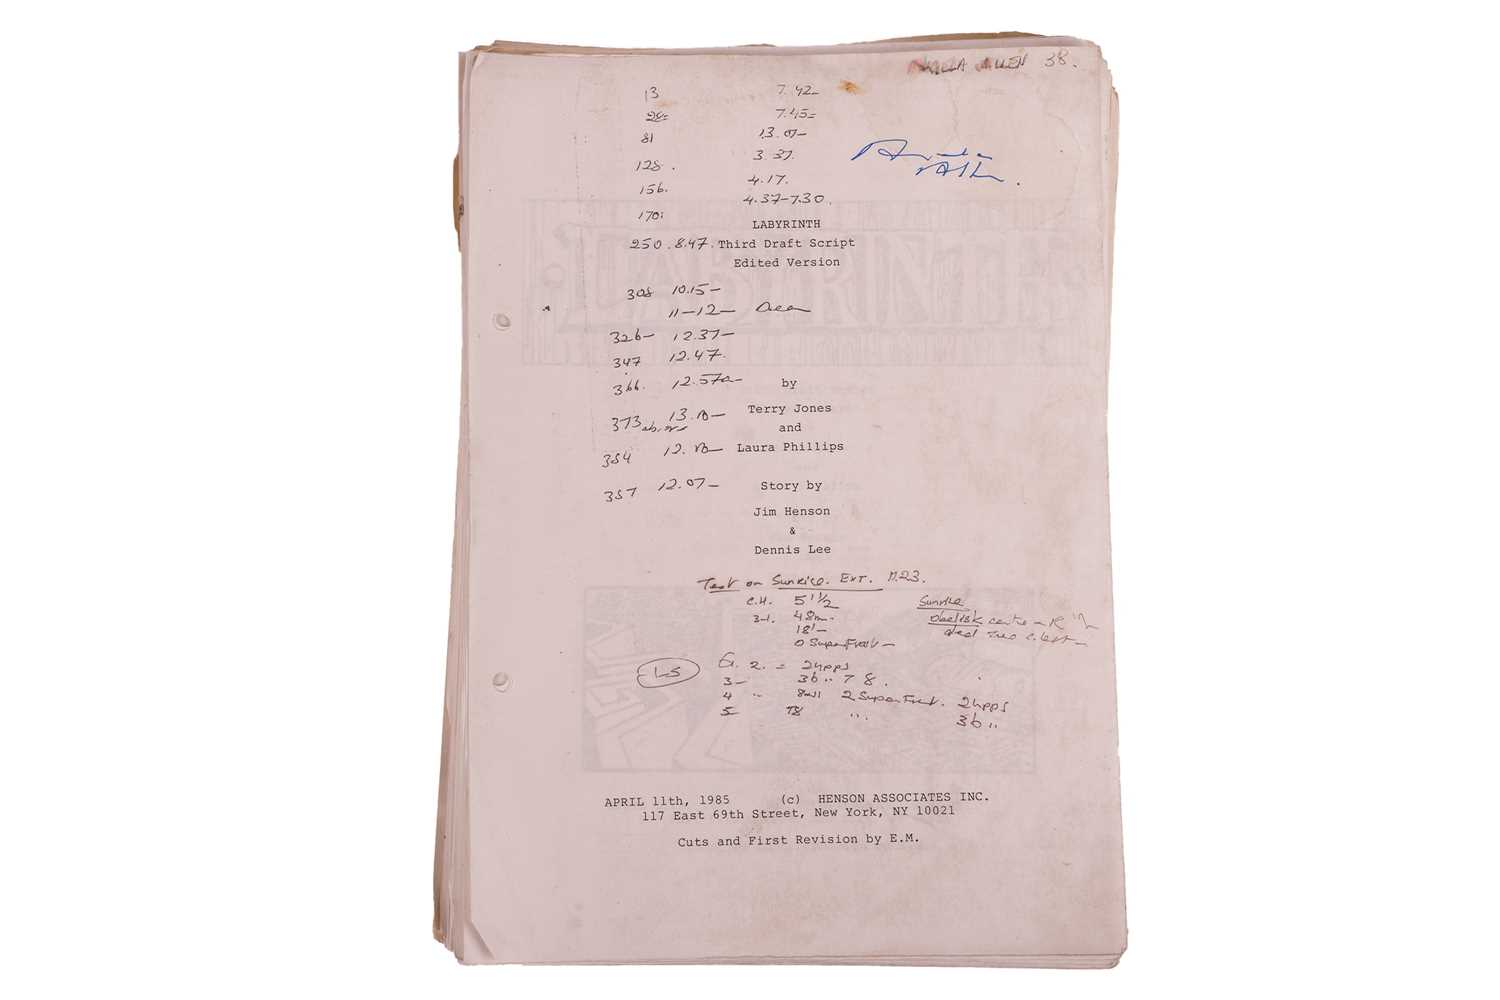 ALLEN 38.
13 7.42-
28= 7.45=
81 13.07-
128. 3.37.
156. 4.17.
4.37-7.30.
170:
LABYRINTH
250. 8.47. Third Draft Script
Edited Version
308 10.15-
11-12-
326- 12.37-
347 12.47.
366. 12.57a-
by
373 13.10-
Terry Jones
and
384 12.10- Laura Phillips
387 12.07- Story by
Jim Henson
&
Dennis Lee
Test on Sunrise. EXT. M.23.
C.H. 5 1/2
3-1. 48m.
18'-
0 SuperFrost-
Sunrise
obelisk centre - R
LS
G. 2. = 24pps
3- 36 " 78.
4 " 8mil 2 SuperFrost. 24pps
5- T8 " 36 "
APRIL 11th, 1985 (c) HENSON ASSOCIATES INC.
117 East 69th Street, New York, NY 10021
Cuts and First Revision by E.M.